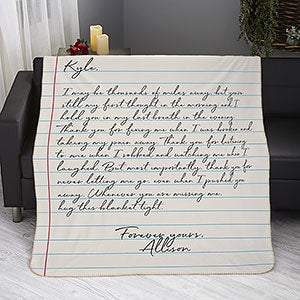 Kyle,
I may be thousands of miles away, but you
still my first thought in the morning and I
hold you in my last breath in the evening.
Thank you for fixing me when I was broke and
taking my pain away. Thank you for listening
to me when I sobbed and watching me when I
laughed. But most importantly, thank you for
never letting me go, even when I pushed you
away. Whenever you are missing me,
hug this blanket tight.
Forever yours,
Allison